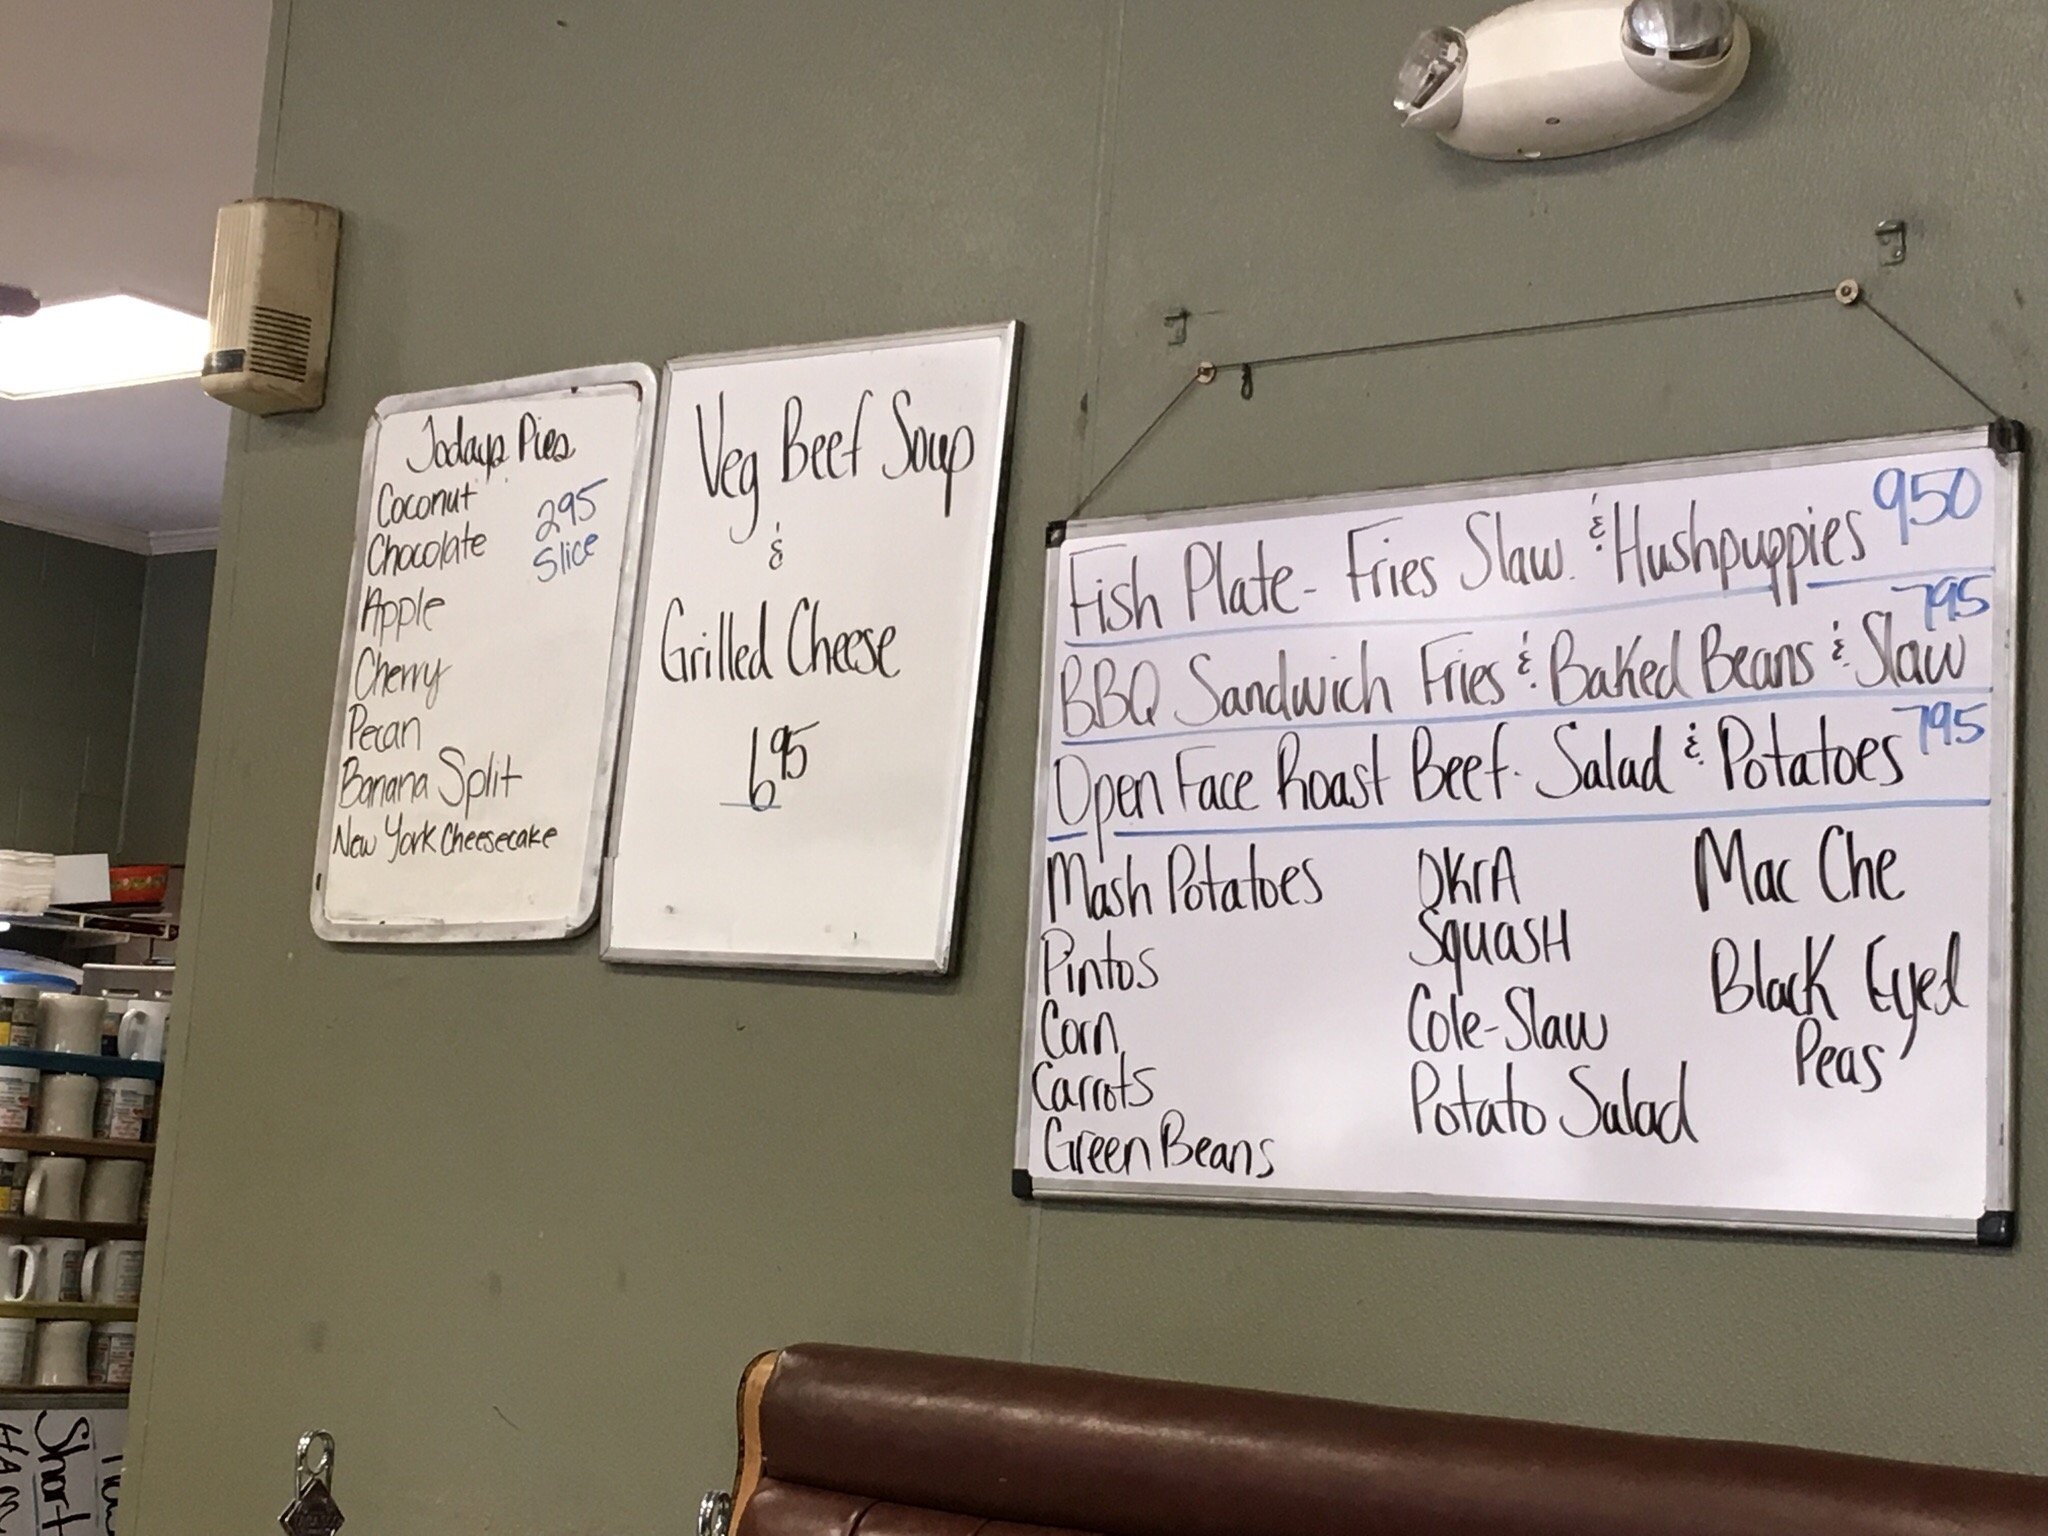 Todays Pies
Coconut
Chocolate
295
Slice
Apple
Cherry
Pecan
Banana Split
New York Cheesecake
Veg Beef Soup
&
Grilled Cheese
6 95
Fish Plate - Fries Slaw & Hushpuppies 950
BBQ Sandwich Fries & Baked Beans & Slaw 795
Open Face Roast Beef. Salad & Potatoes 795
Mash Potatoes
Pintos
Corn
Carrots
Green Beans
OKrA
SquasH
Cole-Slaw
Potato Salad
Mac Che
Black Eyed
Peas
Short